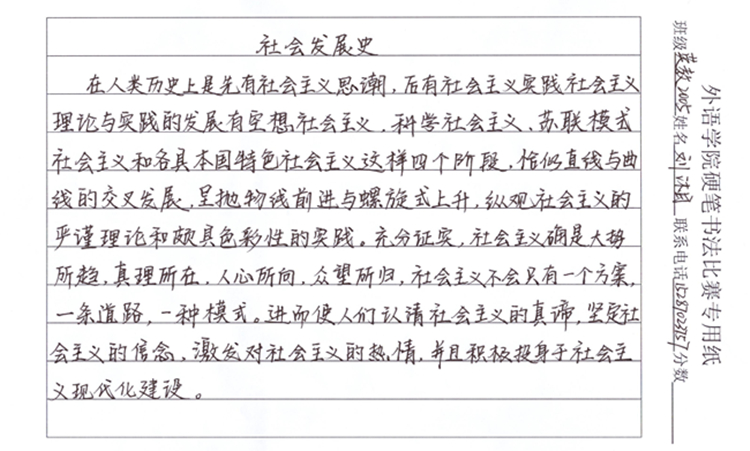 社会发展史
在人类历史上是先有社会主义思潮，后有社会主义实践社会主义
理论与实践的发展有空想社会主义、科学社会主义、苏联模式
社会主义和各具本国特色社会主义这样四个阶段，恰似直线与曲
线的交叉发展，呈抛物线前进与螺旋式上升，纵观社会主义的
严谨理论和颇具色彩性的实践。充分证实，社会主义确是大势
所趋，真理所在，人心所向，众望所归，社会主义不会只有一个方案，
一条道路，一种模式。进而使人们认清社会主义的真谛，坚定社
会主义的信念，激发对社会主义的热情，并且积极投身于社会主
义现代化建设。
外语学院硬笔书法比赛专用纸
班级英教2005姓名刘 联系电话 分数